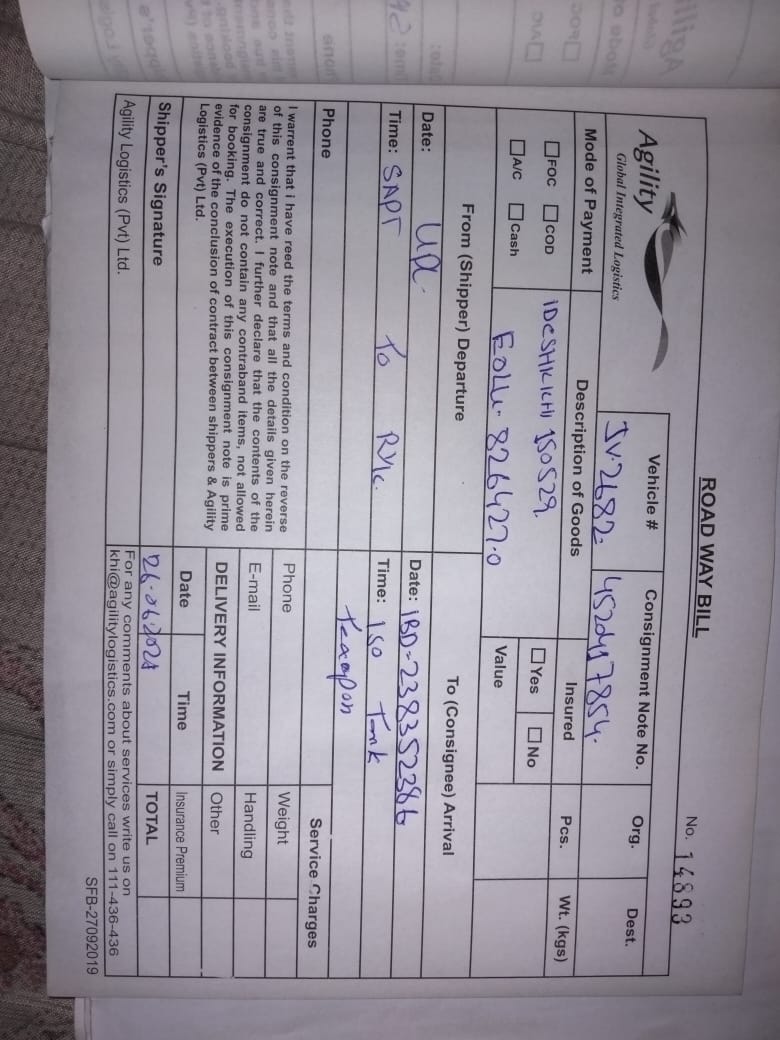 ROAD WAY BILL
No. 14893
Agility
Global Integrated Logistics
Vehicle #
JV-2682
Consignment Note No.
4520417854
Org.
Dest.
Mode of Payment
FOC COD
A/C Cash
Description of Goods
150529
826427-0
Insured
Yes No
Value
Pcs.
Wt. (kgs)
From (Shipper) Departure
Date: UPL
Time: SAPT To RYK
Phone
To (Consignee) Arrival
Date: IBD-238352386
Time: ISO Tank
I warrent that i have reed the terms and condition on the reverse
of this consignment note and that all the details given herein
are true and correct. I further declare that the contents of the
consignment do not contain any contraband items, not allowed
for booking. The execution of this consignment note is prime
evidence of the conclusion of contract between shippers & Agility
Logistics (Pvt) Ltd.
Shipper's Signature
Agility Logistics (Pvt) Ltd.
Phone
E-mail
DELIVERY INFORMATION
Date Time
26-06-2021
Service Charges
Weight
Handling
Other
Insurance Premium
TOTAL
For any comments about services write us on
khi@agilitylogistics.com or simply call on 111-436-436
SFB-27092019